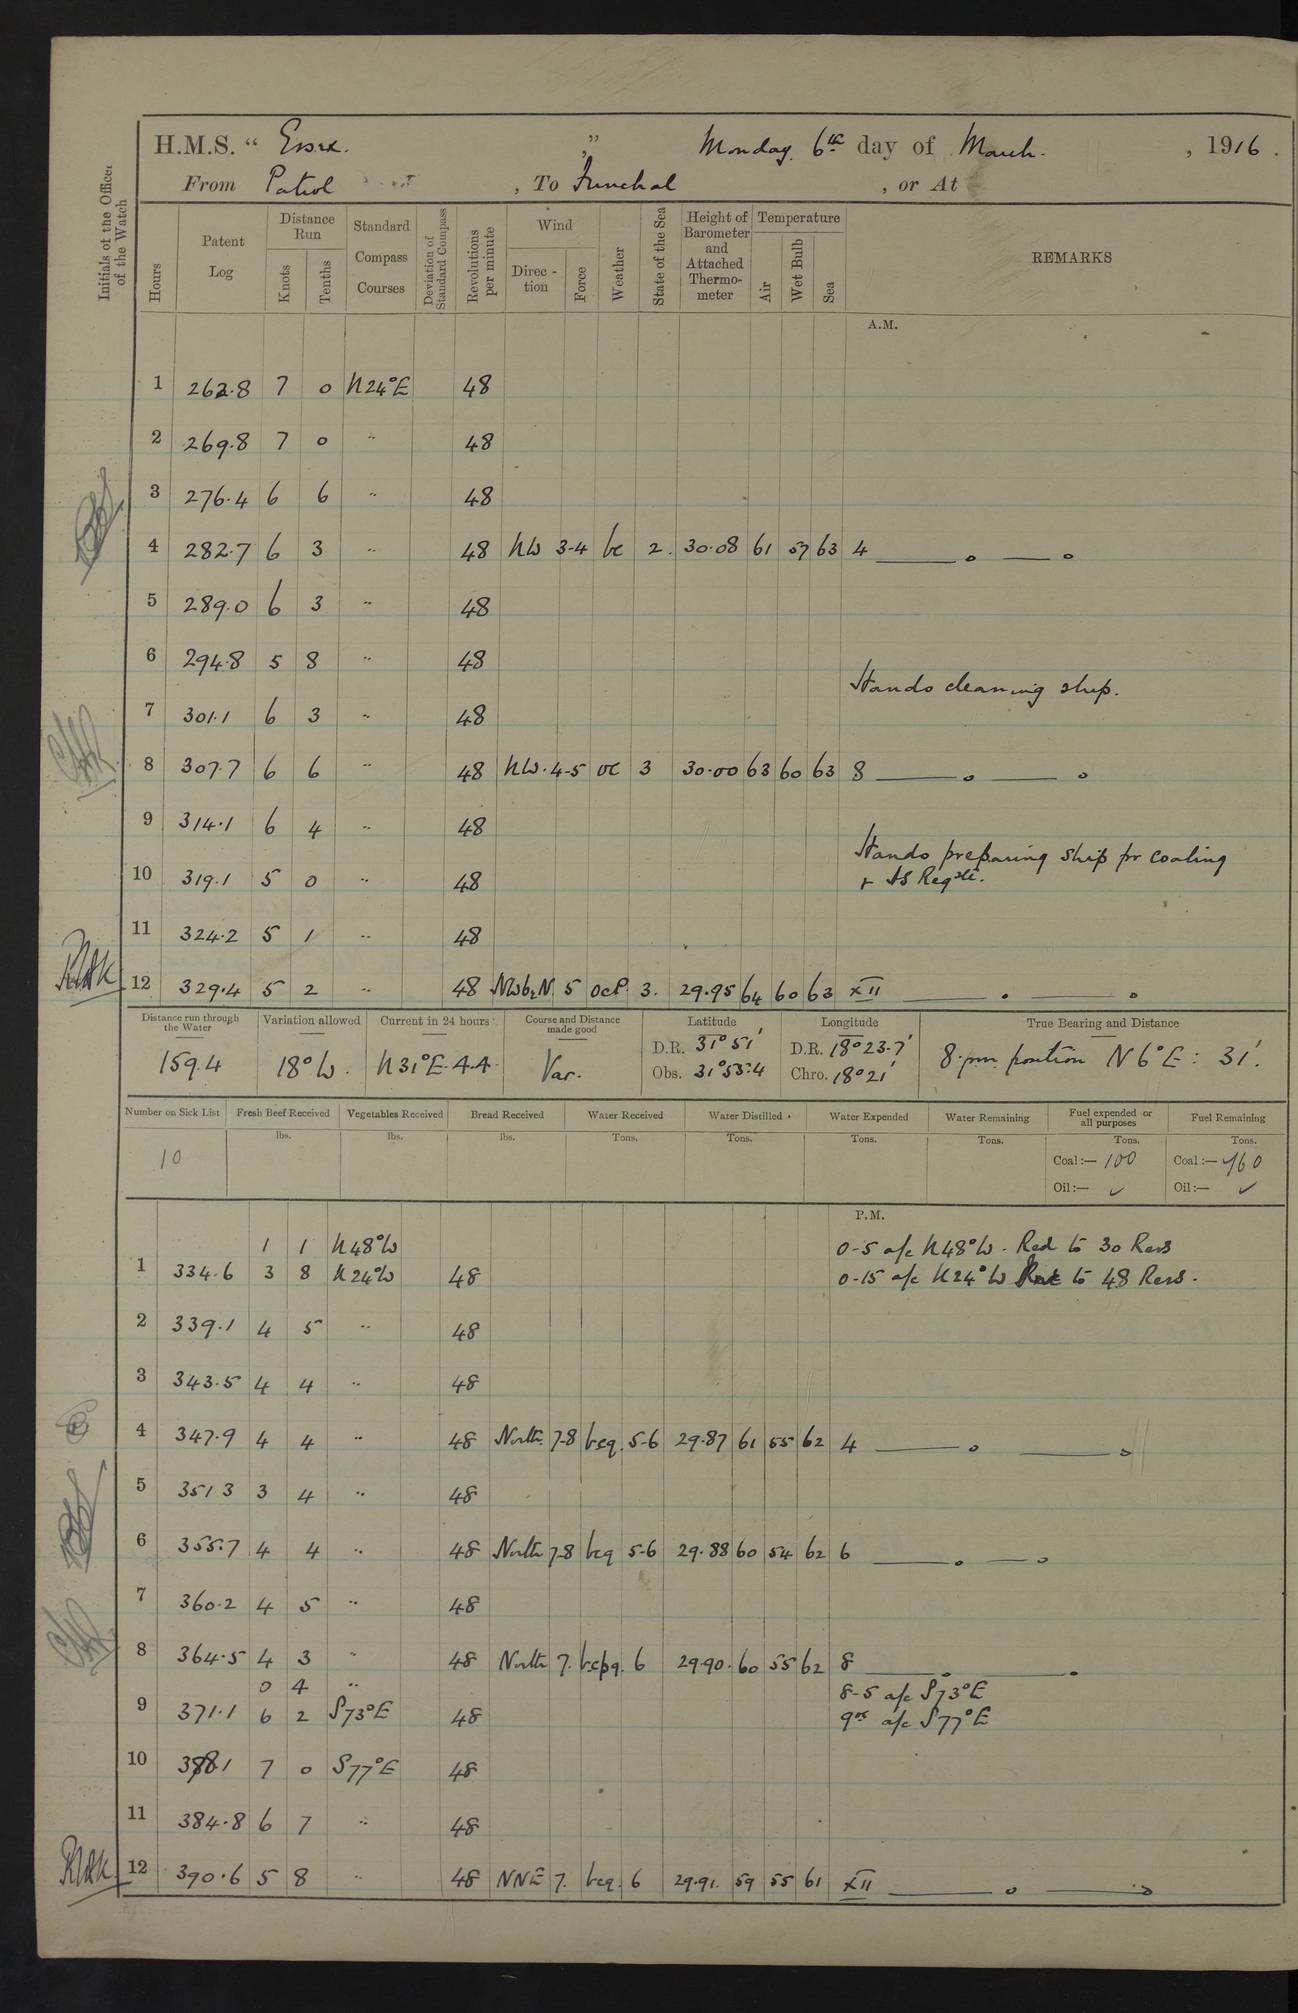 H.M.S. “ Essex. ” Monday 6th day of March. , 1916.
From Patrol , To Funchal , or At
Initials of the Officer of the Watch
Hours Patent Log Distance Run Knots Tenths Standard Compass Courses Deviation of Standard Compass Revolutions per minute Wind Direc-tion Force Weather State of the Sea Height of Barometer and Attached Thermo-meter Temperature Air Wet Bulb Sea REMARKS
A.M.
1 262.8 7 0 N24°E 48
2 269.8 7 0 " 48
3 276.4 6 6 " 48
4 282.7 6 3 " 48 NW 3-4 bc 2. 30.08 61 57 63 4 —— o —— o
5 289.0 6 3 " 48
6 294.8 5 8 " 48
Hands cleaning ship.
7 301.1 6 3 " 48
8 307.7 6 6 " 48 NW. 4-5 oc 3 30.00 63 60 63 8 —— o —— o
9 314.1 6 4 " 48
Hands preparing ship for coaling
10 319.1 5 0 " 48
+ AS Reqte.
11 324.2 5 1 " 48
12 329.4 5 2 " 48 NWbyN. 5 ocP. 3. 29.95 64 60 63 XII —— o —— o
Distance run through the Water Variation allowed Current in 24 hours Course and Distance made good Latitude Longitude True Bearing and Distance
159.4 18°W. N31°E. Var. D.R. 31°51' Obs. 31°55.4 D.R. 18°23.7' Chro. 18°21' 8.pm. position N6°E: 31'.
Number on Sick List Fresh Beef Received Vegetables Received Bread Received Water Received Water Distilled Water Expended Water Remaining Fuel expended or all purposes Fuel Remaining
lbs. lbs. lbs. Tons. Tons. Tons. Tons. Tons. Tons.
10 Coal:— 100 Coal:— 760
Oil:— ✓ Oil:— ✓
P.M.
1 1 N48°W 0-5 a/c N48°W. Red to 30 Revs
1 334.6 3 8 N24°W 48 0-15 a/c N24°W to 48 Revs.
2 339.1 4 5 " 48
3 343.5 4 4 " 48
4 347.9 4 4 " 48 North. 7-8 bcq. 5-6 29.87 61 55 62 4 —— o —— o
5 351.3 3 4 " 48
6 355.7 4 4 " 48 North 7-8 bcq 5-6 29.88 60 54 62 6 —— o —— o
7 360.2 4 5 " 48
8 364.5 4 3 " 48 North 7. bcpq. 6 29.90. 60 55 62 8 —— o —— o
0 4 " 8-5 a/c S73°E
9 371.1 6 2 S73°E 48 9.00 a/c S77°E
10 378.1 7 0 S77°E 48
11 384.8 6 7 " 48
12 390.6 5 8 " 48 NNE 7. bcq. 6 29.91. 59 55 61 XII —— o —— o